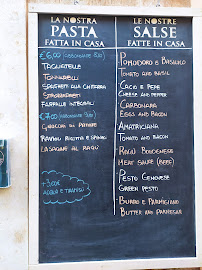 LA NOSTRA
PASTA
FATTA IN CASA
€6,00
TAGLIATELLE
TONNARELLI
SPAGHETTI ALLA CHITARRA
STROZZAPRETI
FARFALLE INTEGRALI
€7,00
GNOCCHI DI PATATE
RAVIOLI RICOTTA E SPINACI
LASAGNE AL RAGÙ
+3,00€
ACQUA E
LE NOSTRE
SALSE
FATTE IN CASA
POMODORO E BASILICO
TOMATO AND BASIL
CACIO E PEPE
CHEESE AND PEPPER
CARBONARA
EGGS AND BACON
AMATRICIANA
TOMATO AND BACON
RAGÙ BOLOGNESE
MEAT SAUCE (BEEF)
PESTO GENOVESE
GREEN PESTO
BURRO E PARMIGIANO
BUTTER AND PARMESAN